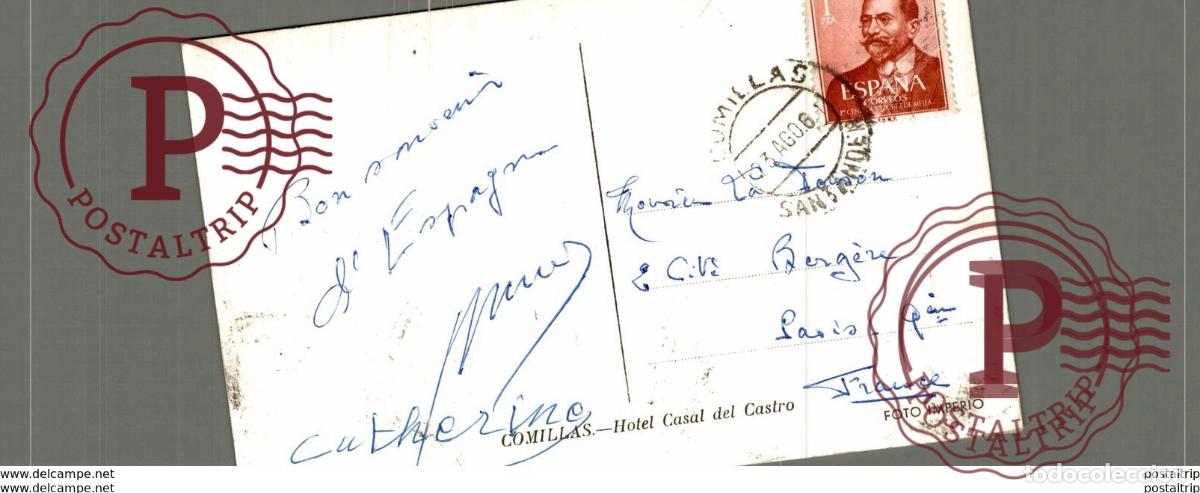 Bon souvenir
d'Espagne
Catherine
1
PTA
ESPAÑA
CORREOS
COMILLAS
3 AGO 6
SANTANDER
La Toison
2 Cité Bergère
Paris. 9ème
France
COMILLAS.—Hotel Casal del Castro
FOTO IMPERIO
P
POSTALTRIP
P
POSTALTRIP
todocoleccion
www.delcampe.net
postaltrip
www.delcampe.net
postaltrip